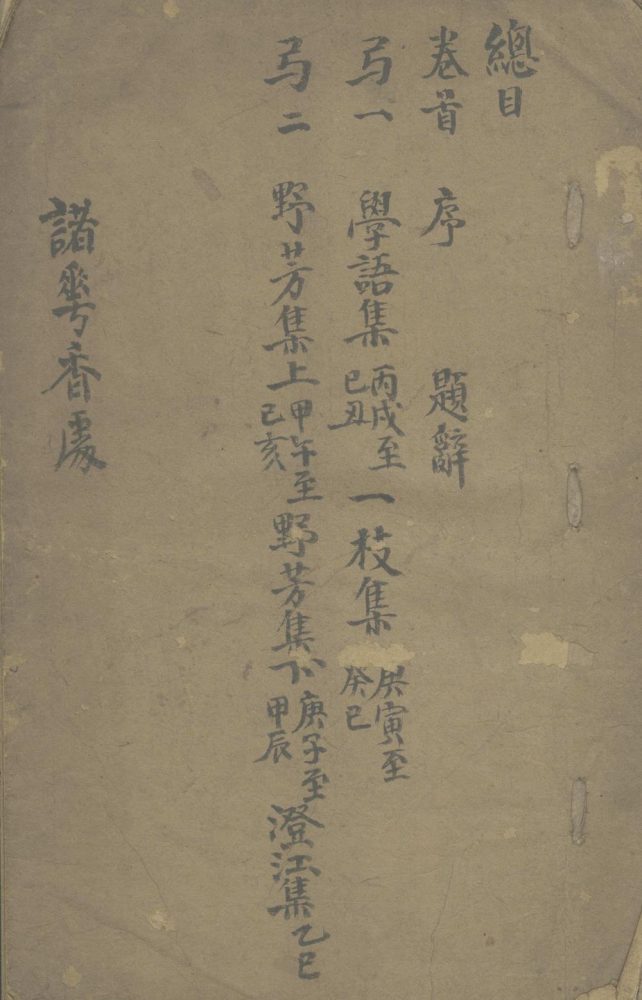 總目
卷首 序 題辭
弓一 學語集 丙戌至己丑 一枝集 庚寅至癸巳
弓二 野芳集上 甲午至己亥 野芳集下 庚子至甲辰 澄江集 乙巳
諸粵香處